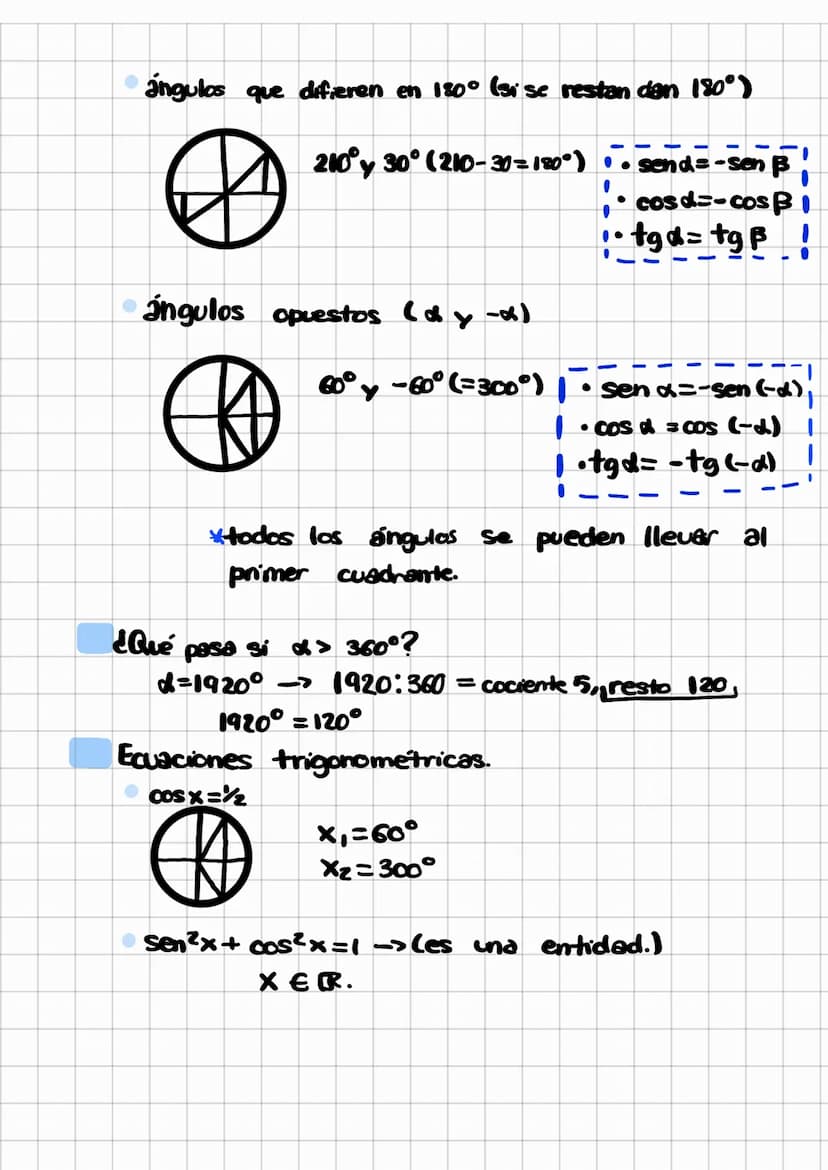 • ángulos que difieren en 180° (si se restan dan 180°)
210° y 30° (210-30=180°)
• sen α=-sen β
• cos α=-cos β
• tg α= tg β
• ángulos opuestos (α y -α)
60° y -60° (=300°)
• sen α=-sen (-α)
• cos α =cos (-α)
• tg α= -tg (-α)
*todos los ángulos se pueden llevar al
primer cuadrante.
¿Qué pasa si α> 360°?
α=1920° → 1920:360 = cociente 5, resto 120,
1920° = 120°
Ecuaciones trigonométricas.
• cos x=1/2
x₁=60°
x₂=300°
• sen²x+ cos²x=1 → (es una entidad.)
X ∈ ℝ.